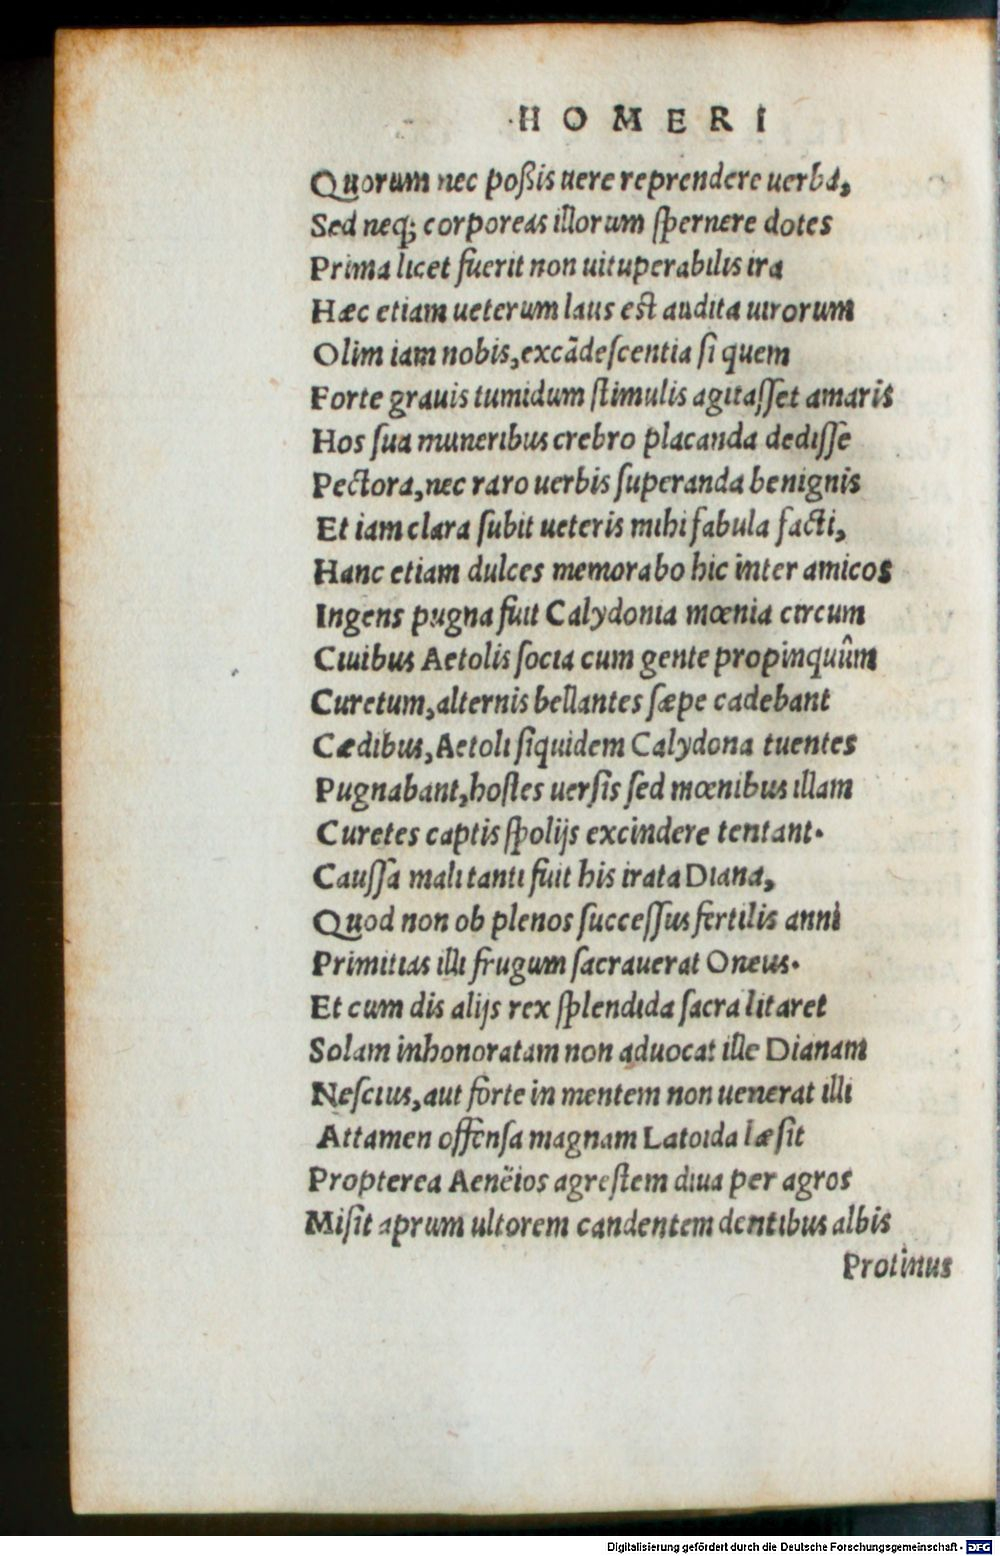 HOMERI
Quorum nec poßis uere reprendere uerba,
Sed neq; corporeas illorum ſpernere dotes
Prima licet fuerit non uituperabilis ira
Hæc etiam ueterum laus est audita uirorum
Olim iam nobis, excãdeſcentia ſi quem
Forte grauis tumidum ſtimulis agitaſſet amaris
Hos ſua muneribus crebro placanda dediſſe
Pectora, nec raro uerbis ſuperanda benignis
Et iam clara ſubit ueteris mihi fabula facti,
Hanc etiam dulces memorabo hic inter amicos
Ingens pugna fuit Calydonia mœnia circum
Ciuibus Aetolis ſocia cum gente propinquûm
Curetum, alternis bellantes ſæpe cadebant
Cædibus, Aetoli ſiquidem Calydona tuentes
Pugnabant, hoſtes uerſis ſed mœnibus illam
Curetes captis ſpolijs excindere tentant.
Cauſſa mali tanti fuit his irata Diana,
Quod non ob plenos ſucceſſus fertilis anni
Primitias illi frugum ſacrauerat Oneus.
Et cum dis alijs rex ſplendida ſacra litaret
Solam inhonoratam non aduocat ille Dianam
Neſcius, aut forte in mentem non uenerat illi
Attamen offenſa magnam Latoida læſit
Propterea Aenëios agreſtem diua per agros
Miſit aprum ultorem candentem dentibus albis
Protinus
Digitalisierung gefördert durch die Deutsche Forschungsgemeinschaft - DFG